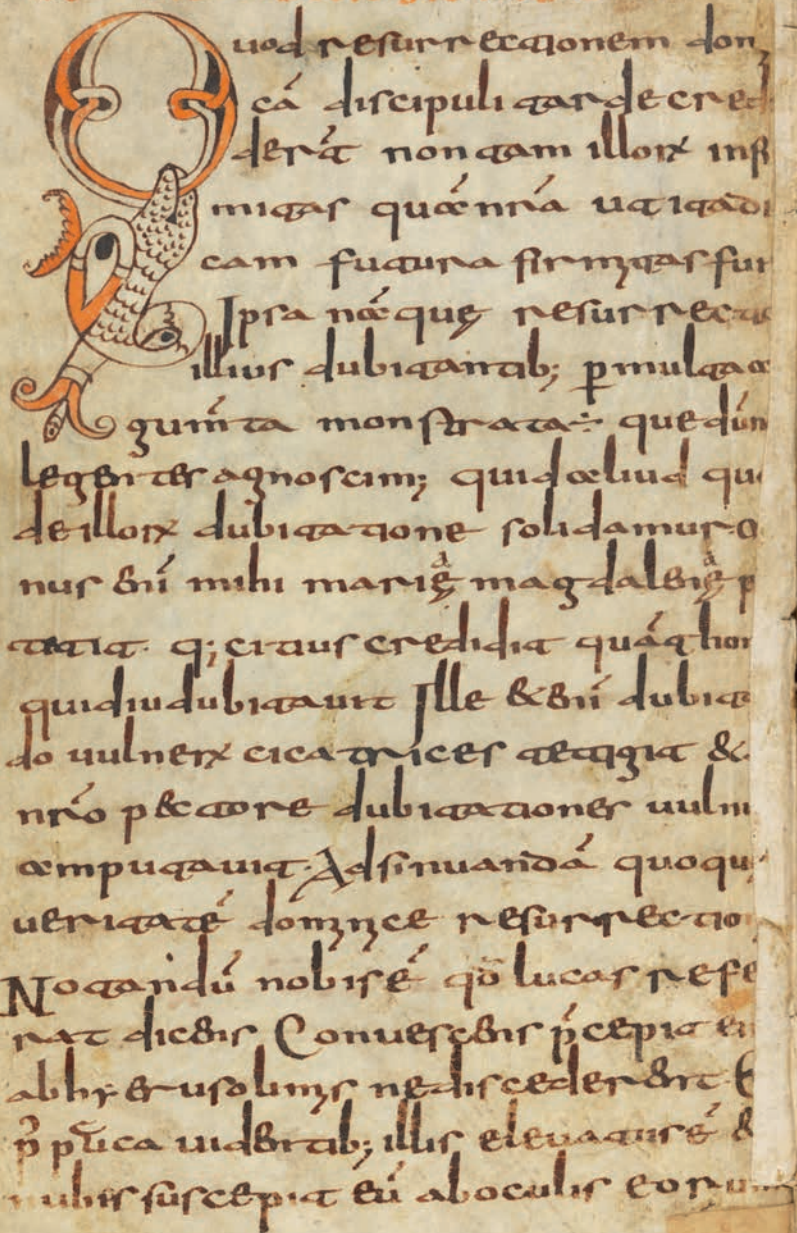 Quod resurrectionem don
cā discipuli tarde cred
derāt non tam illorꝝ infi
mitas quā nr̄a ut ita di
cam futura firmitas fui
Ipsa nāque resurrecti
illius dubitantib; ꝑ multa a
gum̄ta monstrata÷ que dum
legentes agnoscim; quid aliud qu
de illorꝝ dubitatione solidamur
nus eni mihi marię magdalenę p
tetit q; citius credidit quā thom
qui diu dubitauit Ille &eni dubita
do uulnerꝝ cicatrices tetigit &
nr̄o pectore dubitationes uuln
amputauit. Adsinuandā quoqu
ueritatē dominice resurrectio
Notandū nobis ē qd̄ lucas refe
rat dicens Conuescens p̄cepit ei
ab hierusolimis ne discederent E
p̄ pauca uidentib; illis eleuatus ē &
nubis suscepit eū ab oculis eorum